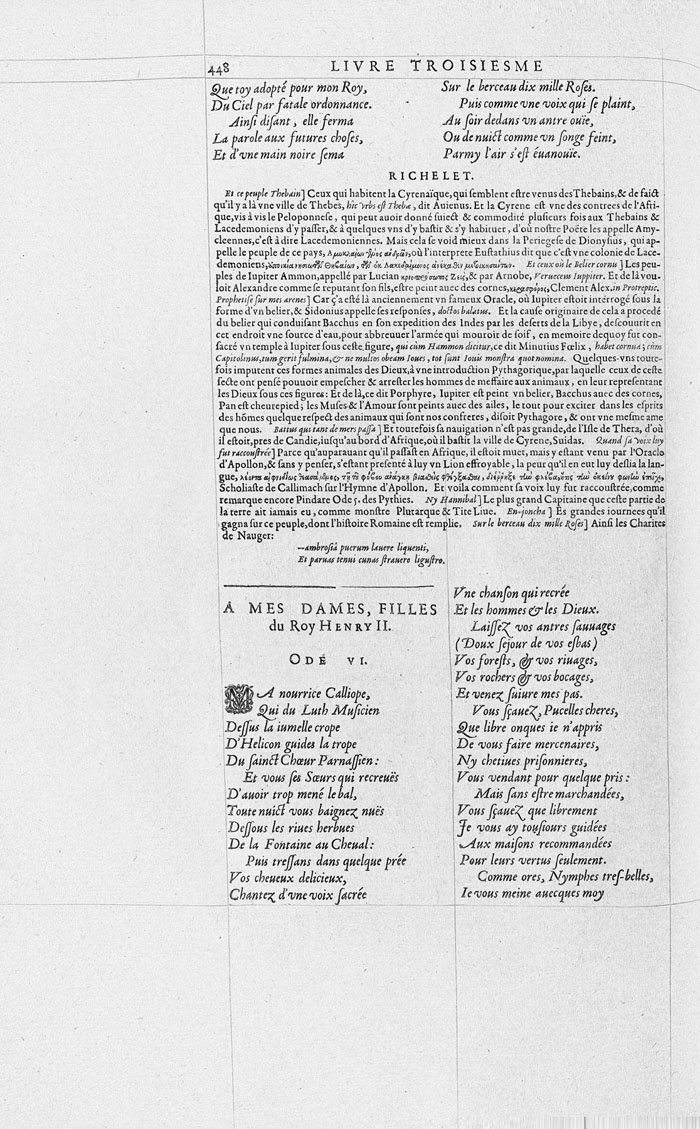 448 LIVRE TROISIESME
Que toy adopté pour mon Roy,
Du Ciel par fatale ordonnance.
Ainsi disant, elle ferma
La parole aux futures choses,
Et d'vne main noire sema
Sur le berceau dix mille Roses.
Puis comme vne voix qui se plaint,
Au soir dedans vn antre ouïe,
Ou de nuict comme vn songe feint,
Parmy l'air s'est éuanouïe.
RICHELET.
Et ce peuple Thebain] Ceux qui habitent la Cyrenaïque, qui semblent estre venus des Thebains, & de faict
qu'il y a là vne ville de Thebes, hic Vrbs est Thebæ, dit Auienus. Et la Cyrene est vne des contrees de l'Afri-
que, vis à vis le Peloponnese, qui peut auoir donné suiect & commodité plusieurs fois aux Thebains &
Lacedemoniens d'y passer, & à quelques vns d'y bastir & s'y habituer, d'où nostre Poëte les appelle Amy-
cleennes, c'est à dire Lacedemoniennes. Mais cela se void mieux dans la Periegese de Dionysius, qui ap-
pelle le peuple de ce pays, où l'interprete Eustathius dit que c'est vne colonie de Lace-
demoniens, Et ceux où le Belier cornu] Les peu-
ples de Iupiter Ammon, appellé par Lucian & par Arnobe, Veruecens Iuppiter. Et de là vou-
loit Alexandre comme se reputant son fils, estre peint auec des cornes, Clement Alex. in Protreptic.
Prophetise sur mes arenes] Car ç'a esté là anciennement vn fameux Oracle, où Iupiter estoit interrogé sous la
forme d'vn belier, & Sidonius appelle ses responses, doctos balatus. Et la cause originaire de cela a procedé
du belier qui conduisant Bacchus en son expedition des Indes par les deserts de la Libye, descouurit en
cet endroit vne source d'eau, pour abbreuuer l'armée qui mouroit de soif, en memoire dequoy fut con-
sacré vn temple à Iupiter sous ceste figure, qui cùm Hammon dicitur, ce dit Minutius Fœlix, habet cornua; cùm
Capitolinus, tum gerit fulmina, & ne multos obeam Ioues, tot sunt Iouis monstra quot nomina. Quelques-vns toute-
fois imputent ces formes animales des Dieux, à vne introduction Pythagorique, par laquelle ceux de ceste
secte ont pensé pouuoir empescher & arrester les hommes de meffaire aux animaux, en leur representant
les Dieux sous ces figures: Et de là, ce dit Porphyre, Iupiter est peint vn belier, Bacchus auec des cornes,
Pan est cheurepied; les Muses & l'Amour sont peints auec des ailes, le tout pour exciter dans les esprits
des hômes quelque respect des animaux qui sont nos confreres, disoit Pythagore, & ont vne mesme ame
que nous. Battus qui tant de mers passa] Et toutefois sa nauigation n'est pas grande, de l'Isle de Thera, d'où
il estoit, pres de Candie, iusqu'au bord d'Afrique, où il bastit la ville de Cyrene, Suidas. Quand sa voix luy
fut raccoustrée] Parce qu'auparauant qu'il passast en Afrique, il estoit muet, mais y estant venu par l'Oracle
d'Apollon, & sans y penser, s'estant presenté à luy vn Lion effroyable, la peur qu'il en eut luy deslia la lan-
gue,
Scholiaste de Callimach sur l'Hymne d'Apollon. Et voila comment sa voix luy fut raccoustrée, comme
remarque encore Pindare Ode 5. des Pythies. Ny Hannibal] Le plus grand Capitaine que ceste partie de
la terre ait iamais eu, comme monstre Plutarque & Tite Liue. En-joncha] Es grandes iournees qu'il
gagna sur ce peuple, dont l'histoire Romaine est remplie. Sur le berceau dix mille Roses] Ainsi les Charites
de Nauger:
--ambrosiâ puerum lauere liquenti,
Et paruas tenui cunas strauero ligustro.
A MES DAMES, FILLES
du Roy HENRY II.
ODE VI.
MA nourrice Calliope,
Qui du Luth Musicien
Dessus la iumelle crope
D'Helicon guides la trope
Du sainct Chœur Parnassien:
Et vous ses Sœurs qui recreuës
D'auoir trop mené le bal,
Toute nuict vous baignez nuës
Dessous les riues herbues
De la Fontaine au Cheual:
Puis tressans dans quelque prée
Vos cheueux delicieux,
Chantez d'vne voix sacrée
Vne chanson qui recrée
Et les hommes & les Dieux.
Laissez vos antres sauuages
(Doux sejour de vos esbas)
Vos forests, & vos riuages,
Vos rochers & vos bocages,
Et venez suiure mes pas.
Vous sçauez, Pucelles cheres,
Que libre onques ie n'appris
De vous faire mercenaires,
Ny chetiues prisonnieres,
Vous vendant pour quelque pris:
Mais sans estre marchandées,
Vous sçauez que librement
Je vous ay tousiours guidées
Aux maisons recommandées
Pour leurs vertus seulement.
Comme ores, Nymphes tres-belles,
Ie vous meine auecques moy